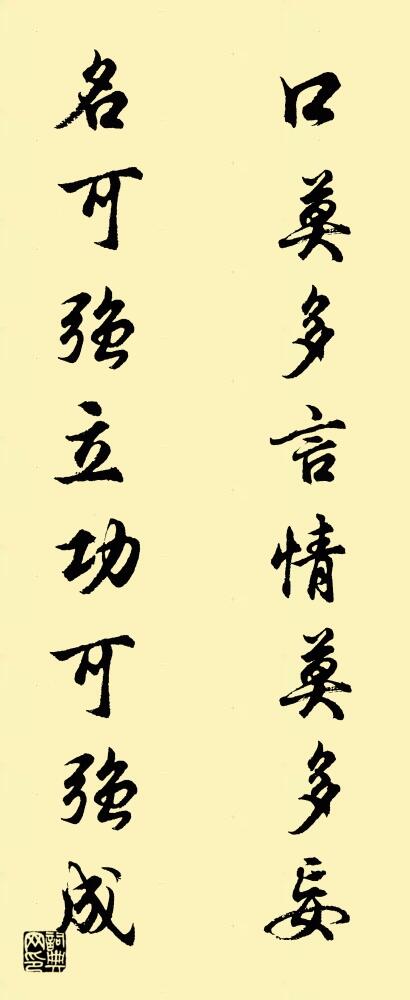 口莫多言情莫多妄
名可强立功可强成
詞典網印